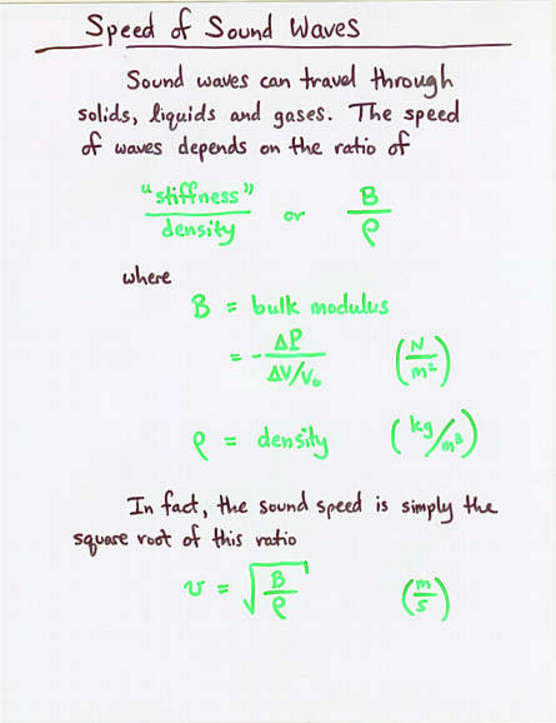 Speed of Sound Waves
Sound waves can travel through
solids, liquids and gases. The speed
of waves depends on the ratio of
"stiffness"/density or B/ρ
where
B = bulk modulus
= - ΔP/(ΔV/V₀) (N/m²)
ρ = density (kg/m³)
In fact, the sound speed is simply the
square root of this ratio
v = √(B/ρ) (m/s)